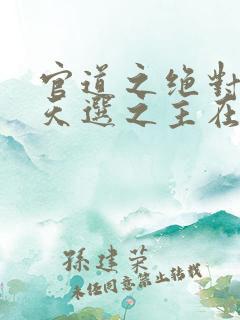 官道之绝对
天選之主在
孫建荣
未经同意禁止转载